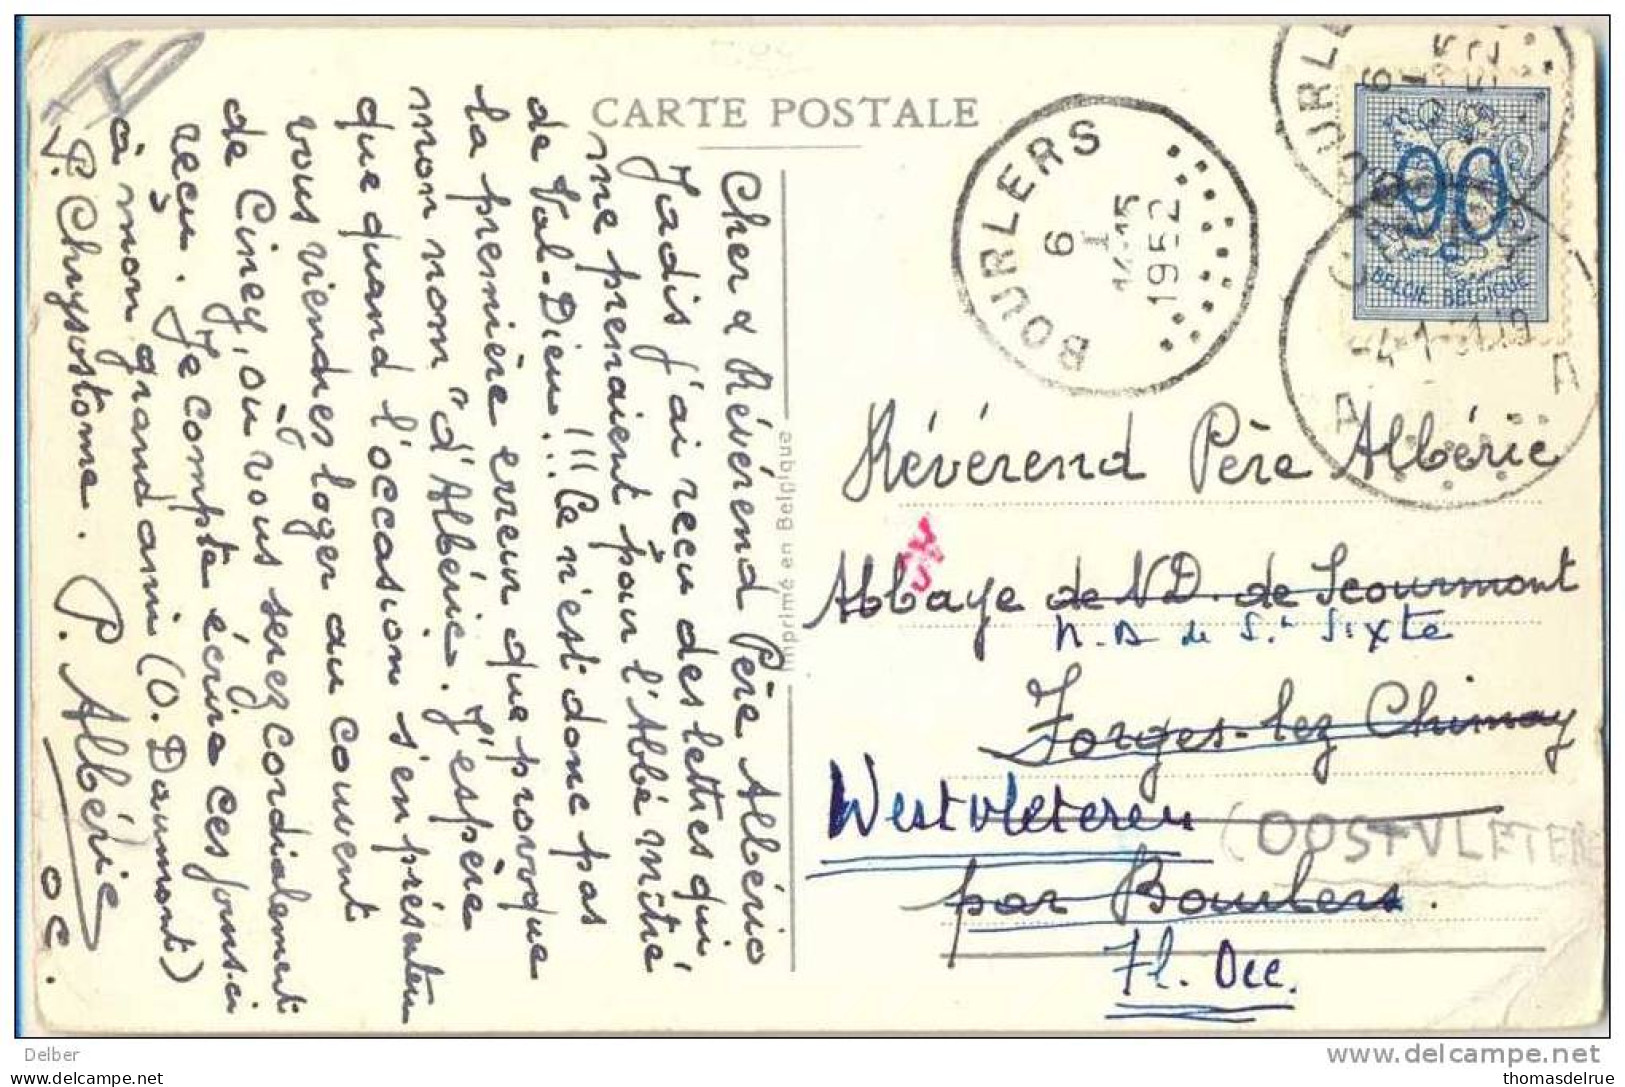 CARTE POSTALE
Cher & Révérend Père Albério
Jadis j'ai reçu des lettres qui,
me prenaient pour l'Abbé mitré
de Val-Dieu!!! Ce n'est donc pas
la première erreur que provoque
mon nom "d'Albéric. J'espère
que quand l'occasion s'en présentera
vous viendrez loger au couvent
de Ciney, où vous serez cordialement
reçu. Je compte écrire ces jours-ci
à mon grand ami (O. Daumont)
P. Chrysostome. P. Albéric
oc.
Imprimé en Belgique
BOURLERS
6
I
14-15
1952
BOURLE
6
I
15
52
90
BELGIE BELGIQUE
-4-1-
A
A
Révérend Père Albéric
Abbaye de N.D. de Scourmont
N. D de St Sixte
Forges-lez Chimay
Westvleteren
(OOSTVLETERE
par Bourlers.
Fl. Occ.
T
Delber
www.delcampe.net
thomasdelrue